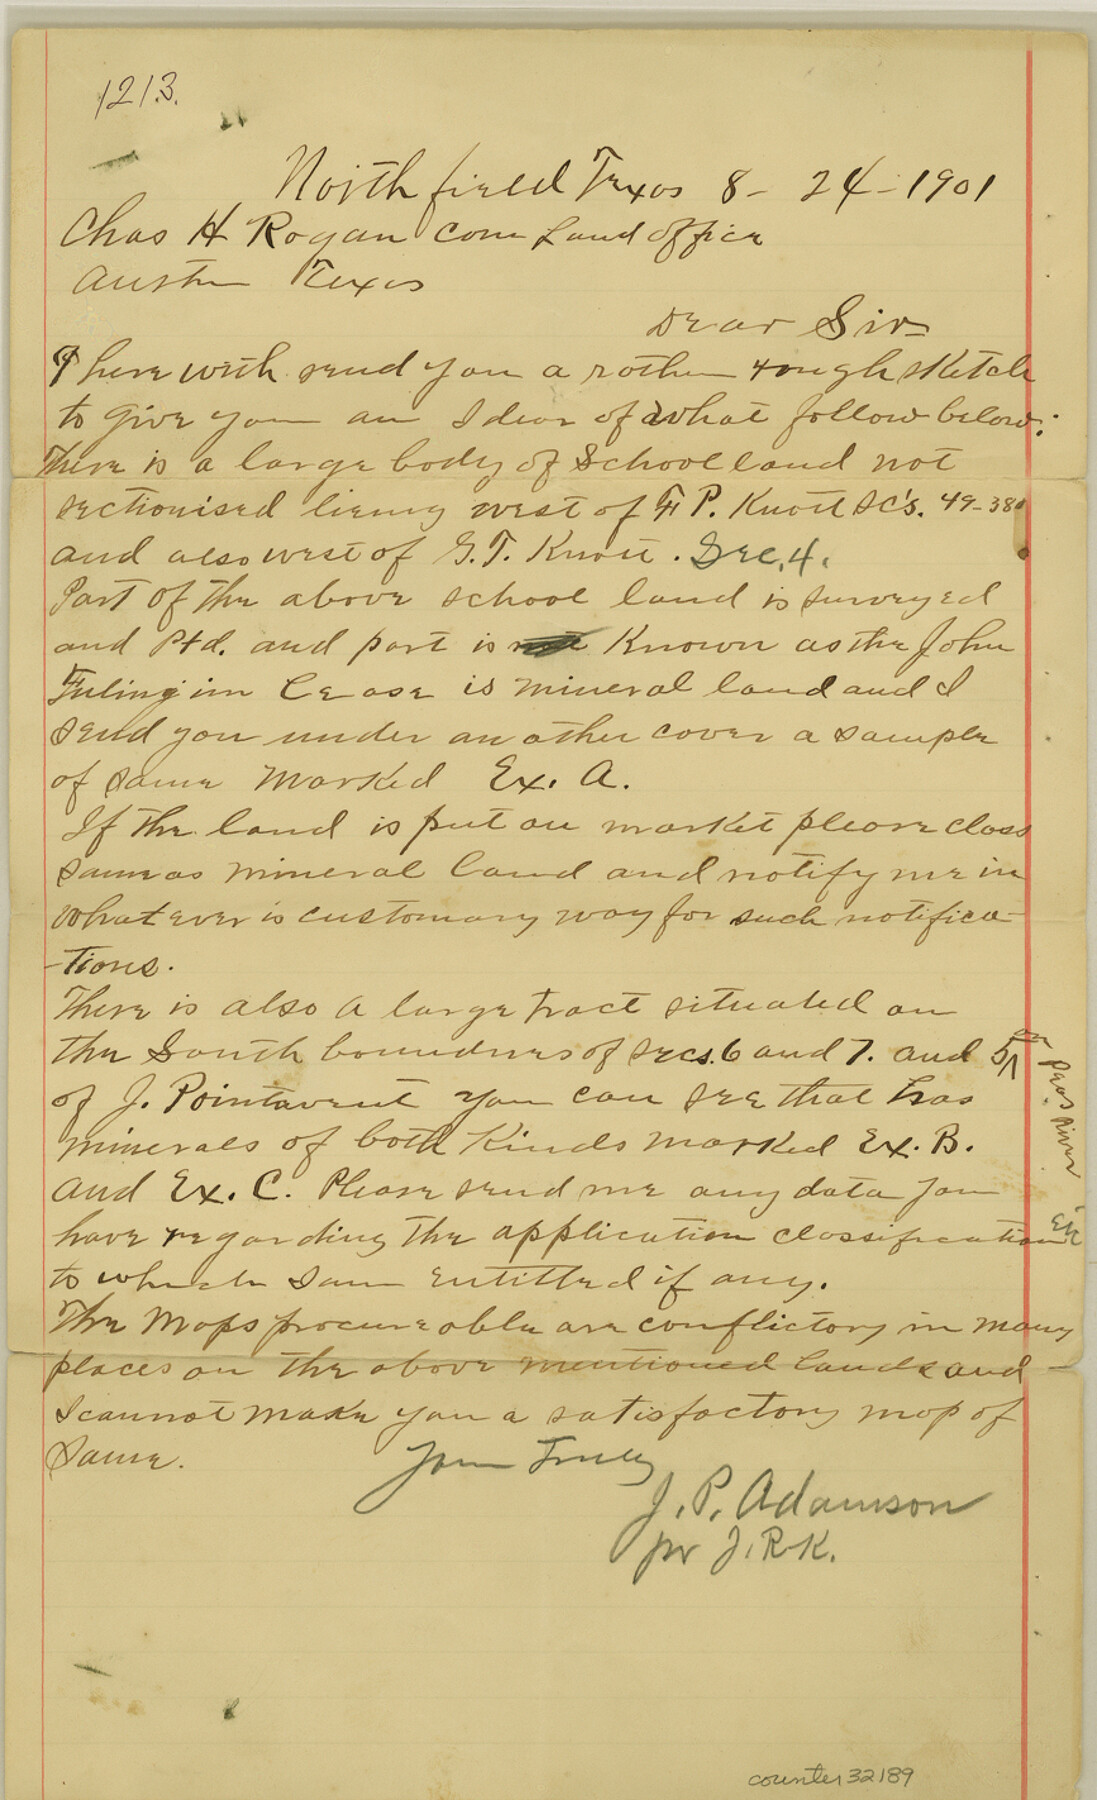 1213.
Northfield Texas 8-24-1901
Chas H Rogan Com Land office
Austin Texas
Dear Sir
I herewith send you a rather rough sketch
to give you an Idear of what follow below:
There is a large body of School land not
sectionised lieing west of F P. Knott Sc's. 49-380
and also west of G.T. Knott. Sec, 4.
Part of the above school land is surveyed
and Ptd. and part is Known as the John
Lease is mineral land and I
send you under an other cover a sample
of same Marked Ex. A.
If the land is put on market please class
same as mineral land and notify me in
what ever is customary way for such notifica-
-tions.
There is also a large tract situated on
the South boundries of secs. 6 and 7. and 5
of J. Pointavent you can see that has
minerals of both Kinds marked Ex. B.
and Ex. C. Please send me any data you
have regarding the application classification
to which I am entitled if any.
The Maps procureable are conflictory in many
places on the above mentioned lands and
I cannot make you a satisfactory map of
Same.
Your Truly
J. P. Adamson
pr J. R. K.
on Peas River
Etc
counter 32189